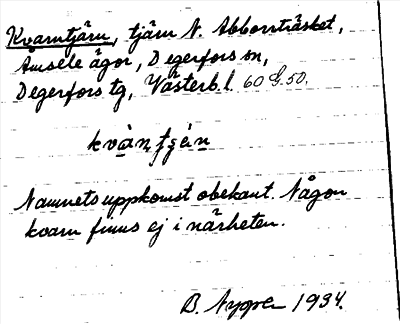 Kvarntjärn, tjärn N. Abborrträsket,
Åmsele ägor, Degerfors sn,
Degerfors tg, Västerb. l. 60 G. 50.
kvàntjǽn
Namnets uppkomst obekant. Någon
kvarn finns ej i närheten.
B. Nygren 1934.